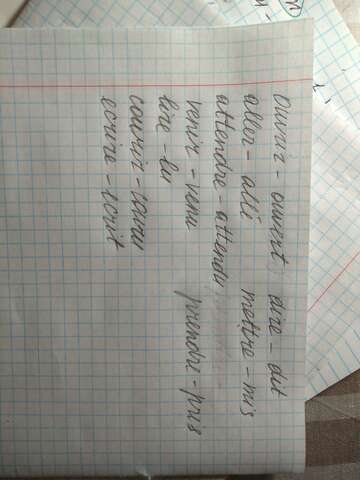 ouvrir - ouvert dire - dit
aller - allé mettre - mis
attendre - attendu
venir - venu prendre - pris
lire - lu
courir - couru
ecrire - ecrit